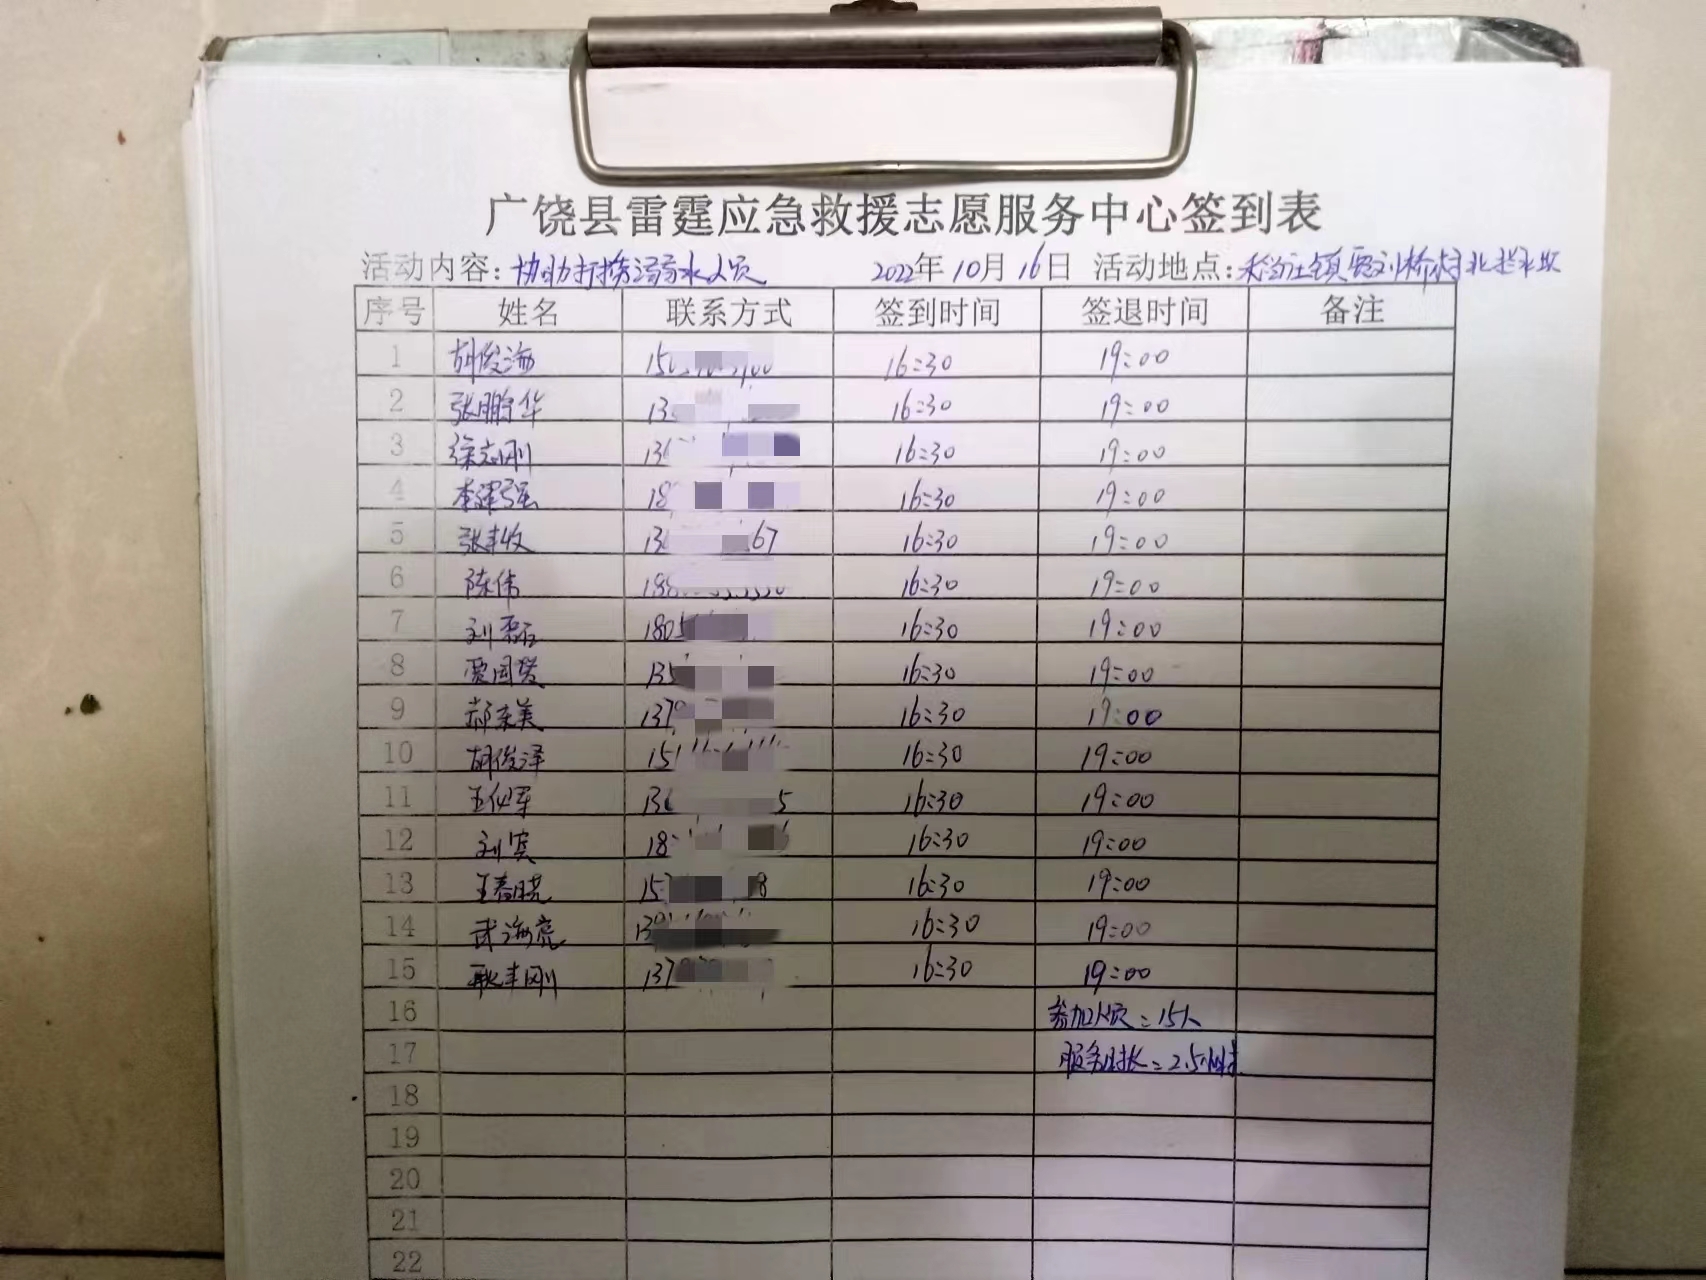 广饶县雷霆应急救援志愿服务中心签到表
活动内容：协助打捞溺水人员 2022年10月16日 活动地点：
序号 姓名 联系方式 签到时间 签退时间 备注
1 胡俊海 16:30 19:00
2 张鹏华 16:30 19:00
3 徐志刚 16:30 19:00
4 李建强 16:30 19:00
5 张丰收 67 16:30 19:00
6 陈伟 16:30 19:00
7 刘磊 1805 16:30 19:00
8 贾国 135 16:30 19:00
9 郝东美 137 16:30 19:00
10 胡俊泽 15 16:30 19:00
11 5 16:30 19:00
12 刘宾 18 16:30 19:00
13 王春晓 15 8 16:30 19:00
14 武海亮 16:30 19:00
15 耿丰刚 137 16:30 19:00
16 参加人员：15人
17 服务时长：2.5小时
18
19
20
21
22